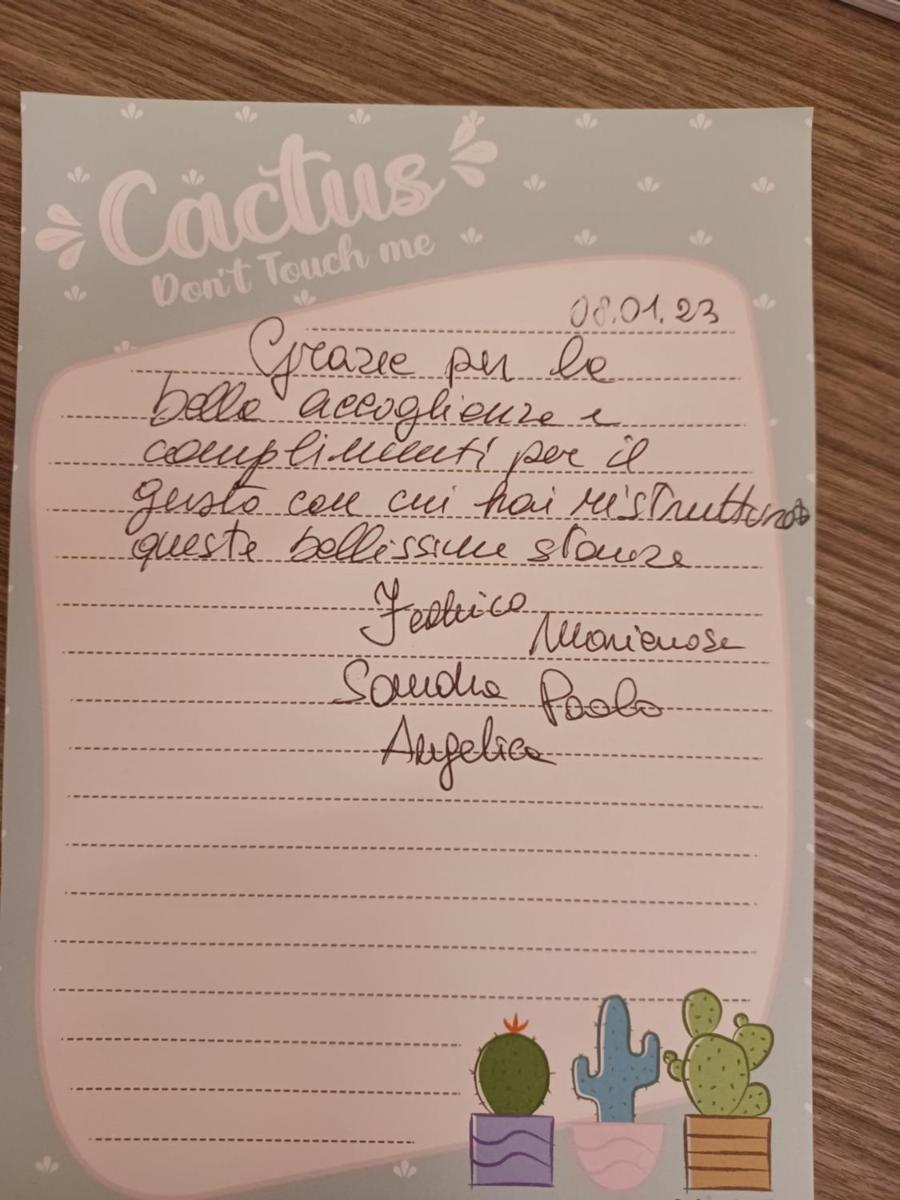 Cactus
Don't Touch me
08.01.23
Grazie per la
bella accoglienza e
complimenti per il
gusto con cui hai ristrutturato
queste bellissime stanze
Federico
Mariarosa
Sandra Paolo
Angelica